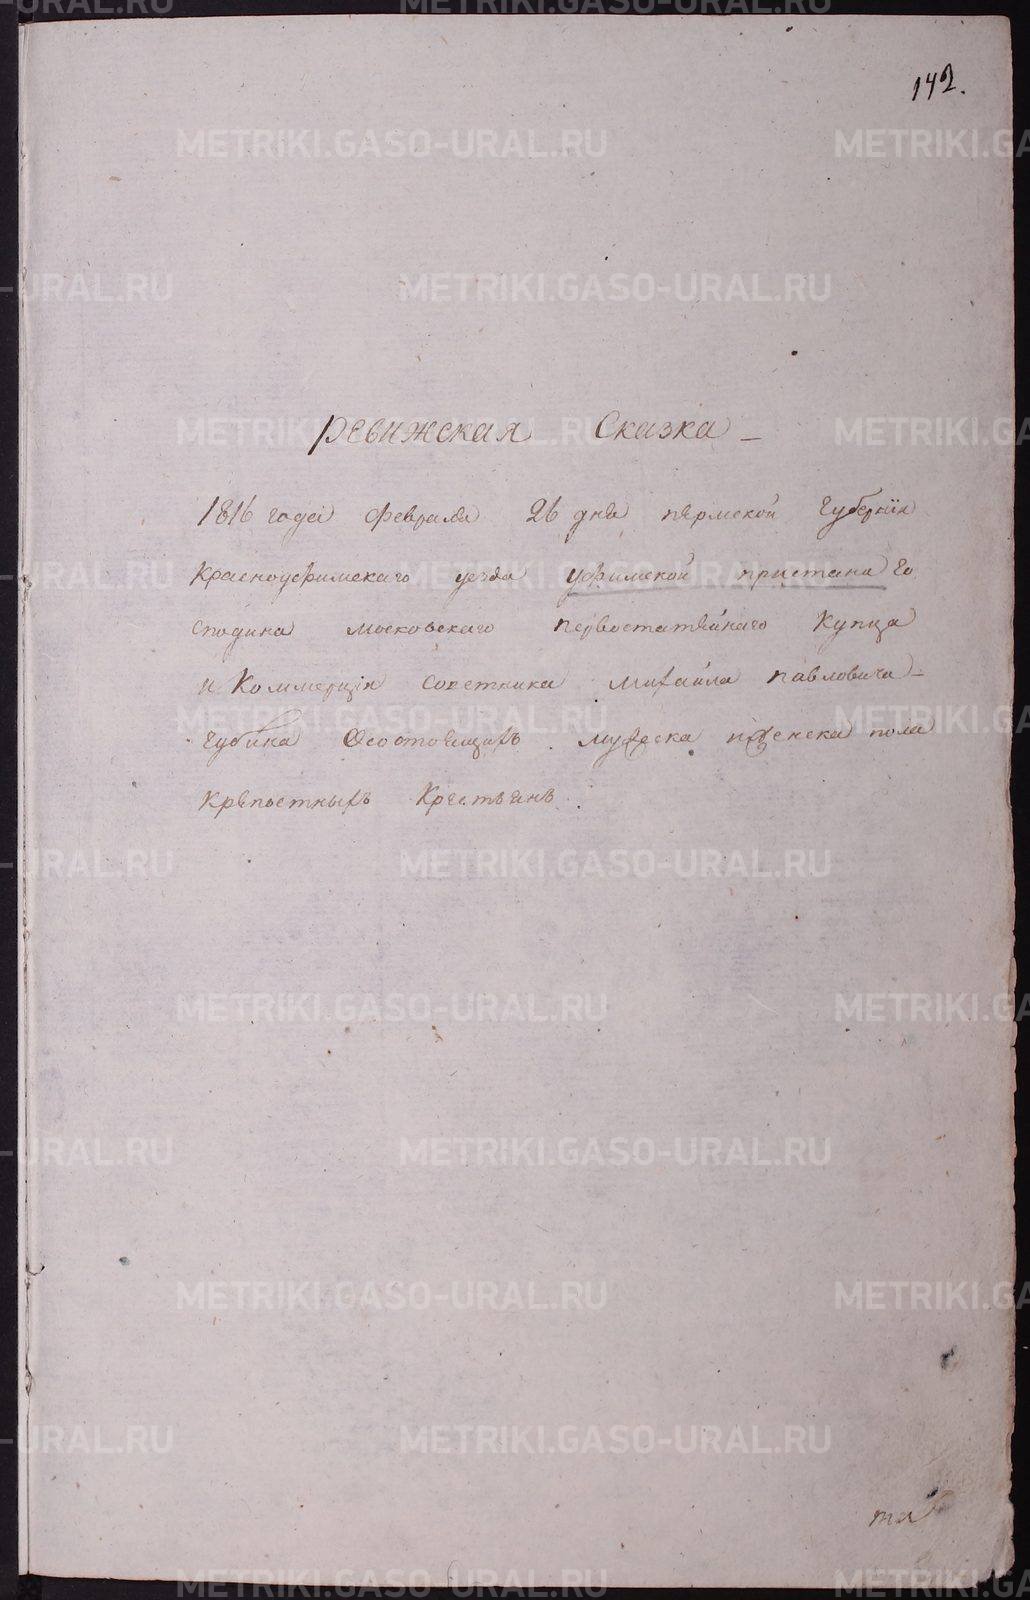 142.
Ревижская Сказка
1816 года февраля 26 дня пермской Губернiи
Красноуфимскаго уезда Уфимской пристани Го
сподина московскаго первостатейнаго Купца
и Коммерцiи советника михайла павловича
Губина Осостоящихъ мужеска и женска пола
крѣпостныхъ Крестьянъ